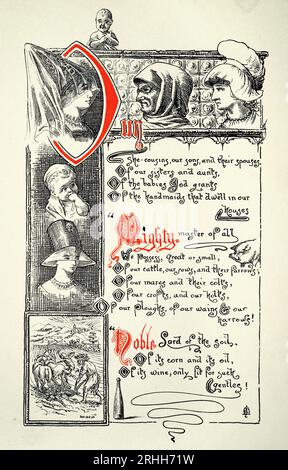 Our
She-cousins, our sons, and their spouses,
Of our sisters and aunts,
Of the babies God grants
Of the handmaids that dwell in our
houses
"Mighty master of all
We possess, great or small;
Of our cattle, our sows, and their farrows;
Of our mares and their colts;
Of our crofts, and our holts,
Of our ploughs, of our wains & our
harrows!
"Noble Lord of the soil,
Of its corn and its oil,
Of its wine, only fit for such
gentles!
alamy
Image ID: 2RHH71W
www.alamy.com